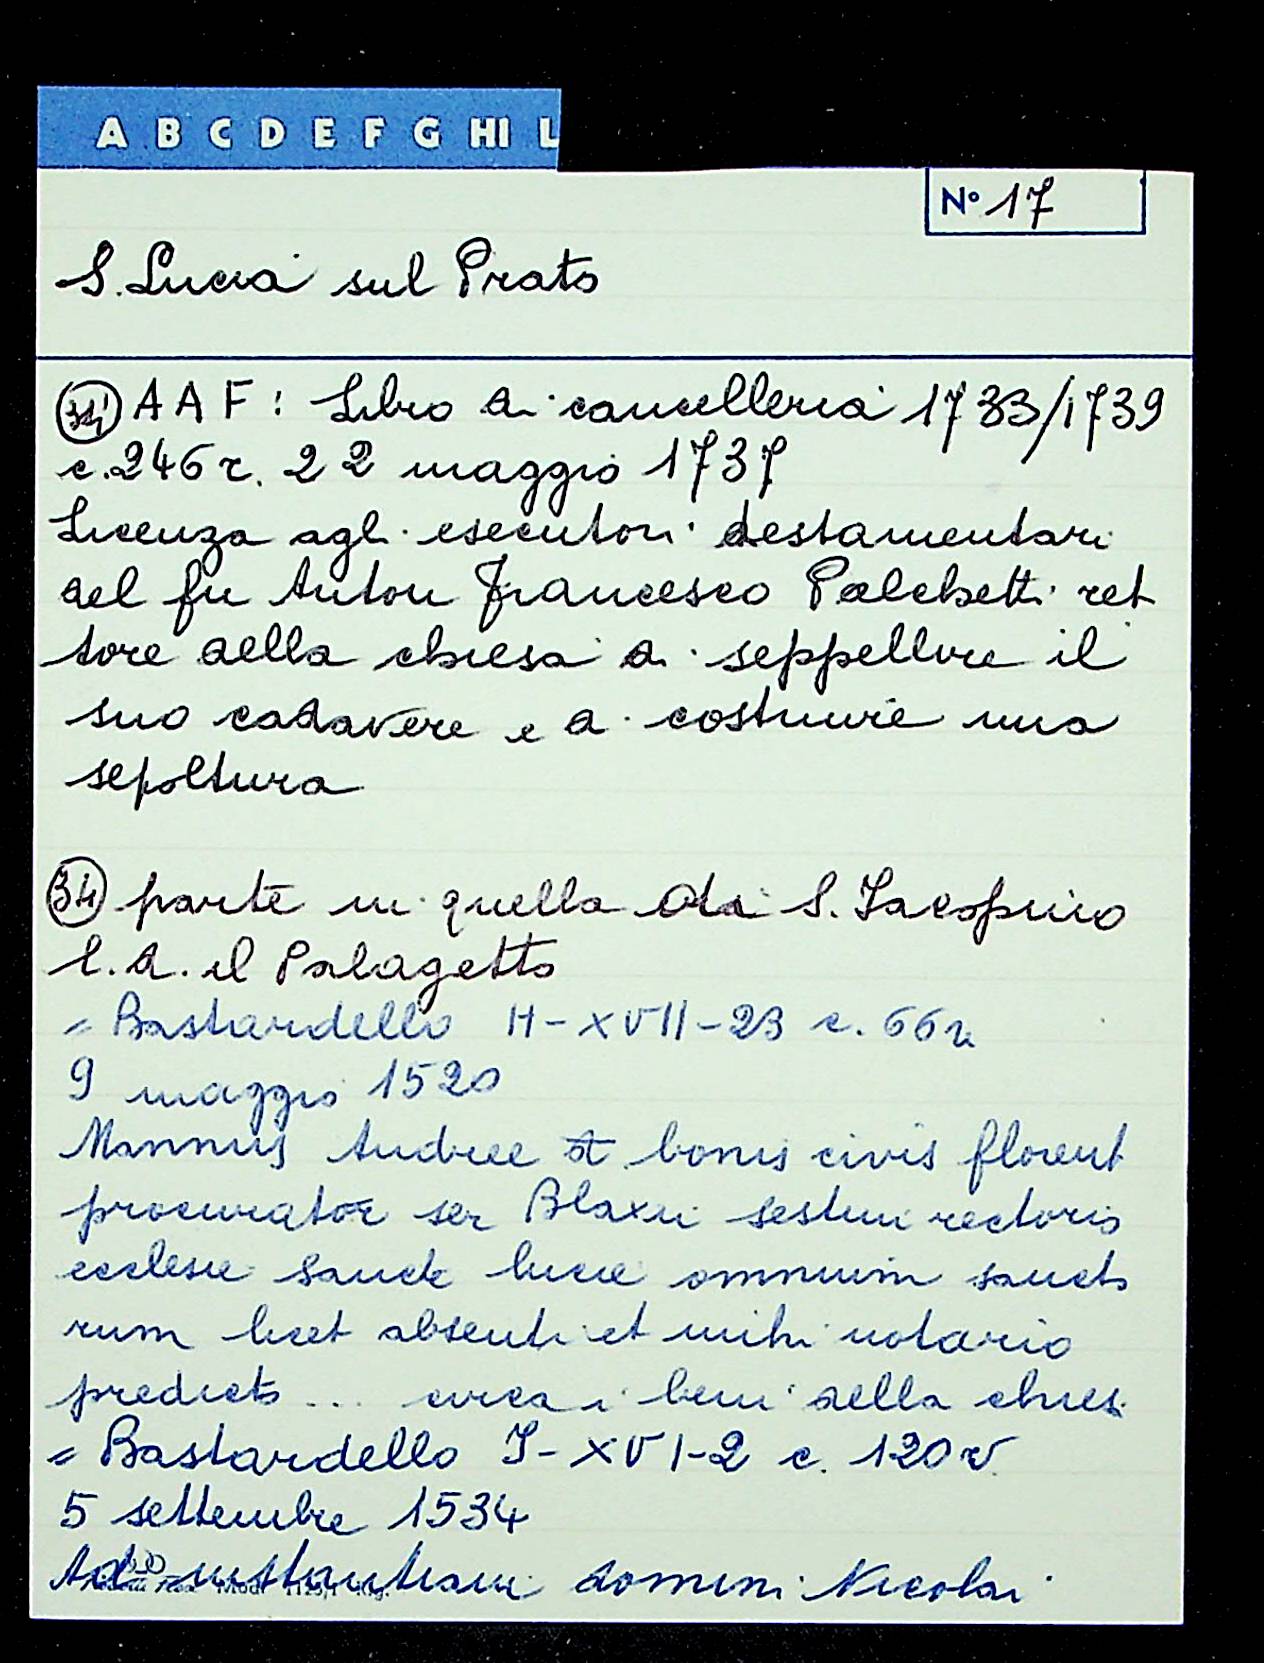 A B C D E F G HI L
N° 17
S. Lucia sul Prato
34 AAF: Libro di cancelleria 1733/1739
c. 246 r. 22 maggio 1737
Licenza agli esecutori testamentari
del fu Anton Francesco Palchetti ret
tore della chiesa di seppellire il
suo cadavere e di costruire una
sepoltura
34 parte in quella di S. Jacopino
l.d. il Palagetto
= Bastardello H-XVII-23 c. 66r
9 maggio 1520
Mannus Andree bonis civis florent
procurator ser Blaxii rectoris
ecclesie Sancte lucie omnium sancto
rum licet absenti et mihi notario
predicto ... circa i beni della chies.
= Bastardello J-XVI-2 c. 120v.
5 settembre 1534
Ad instantiam domini Nicolai